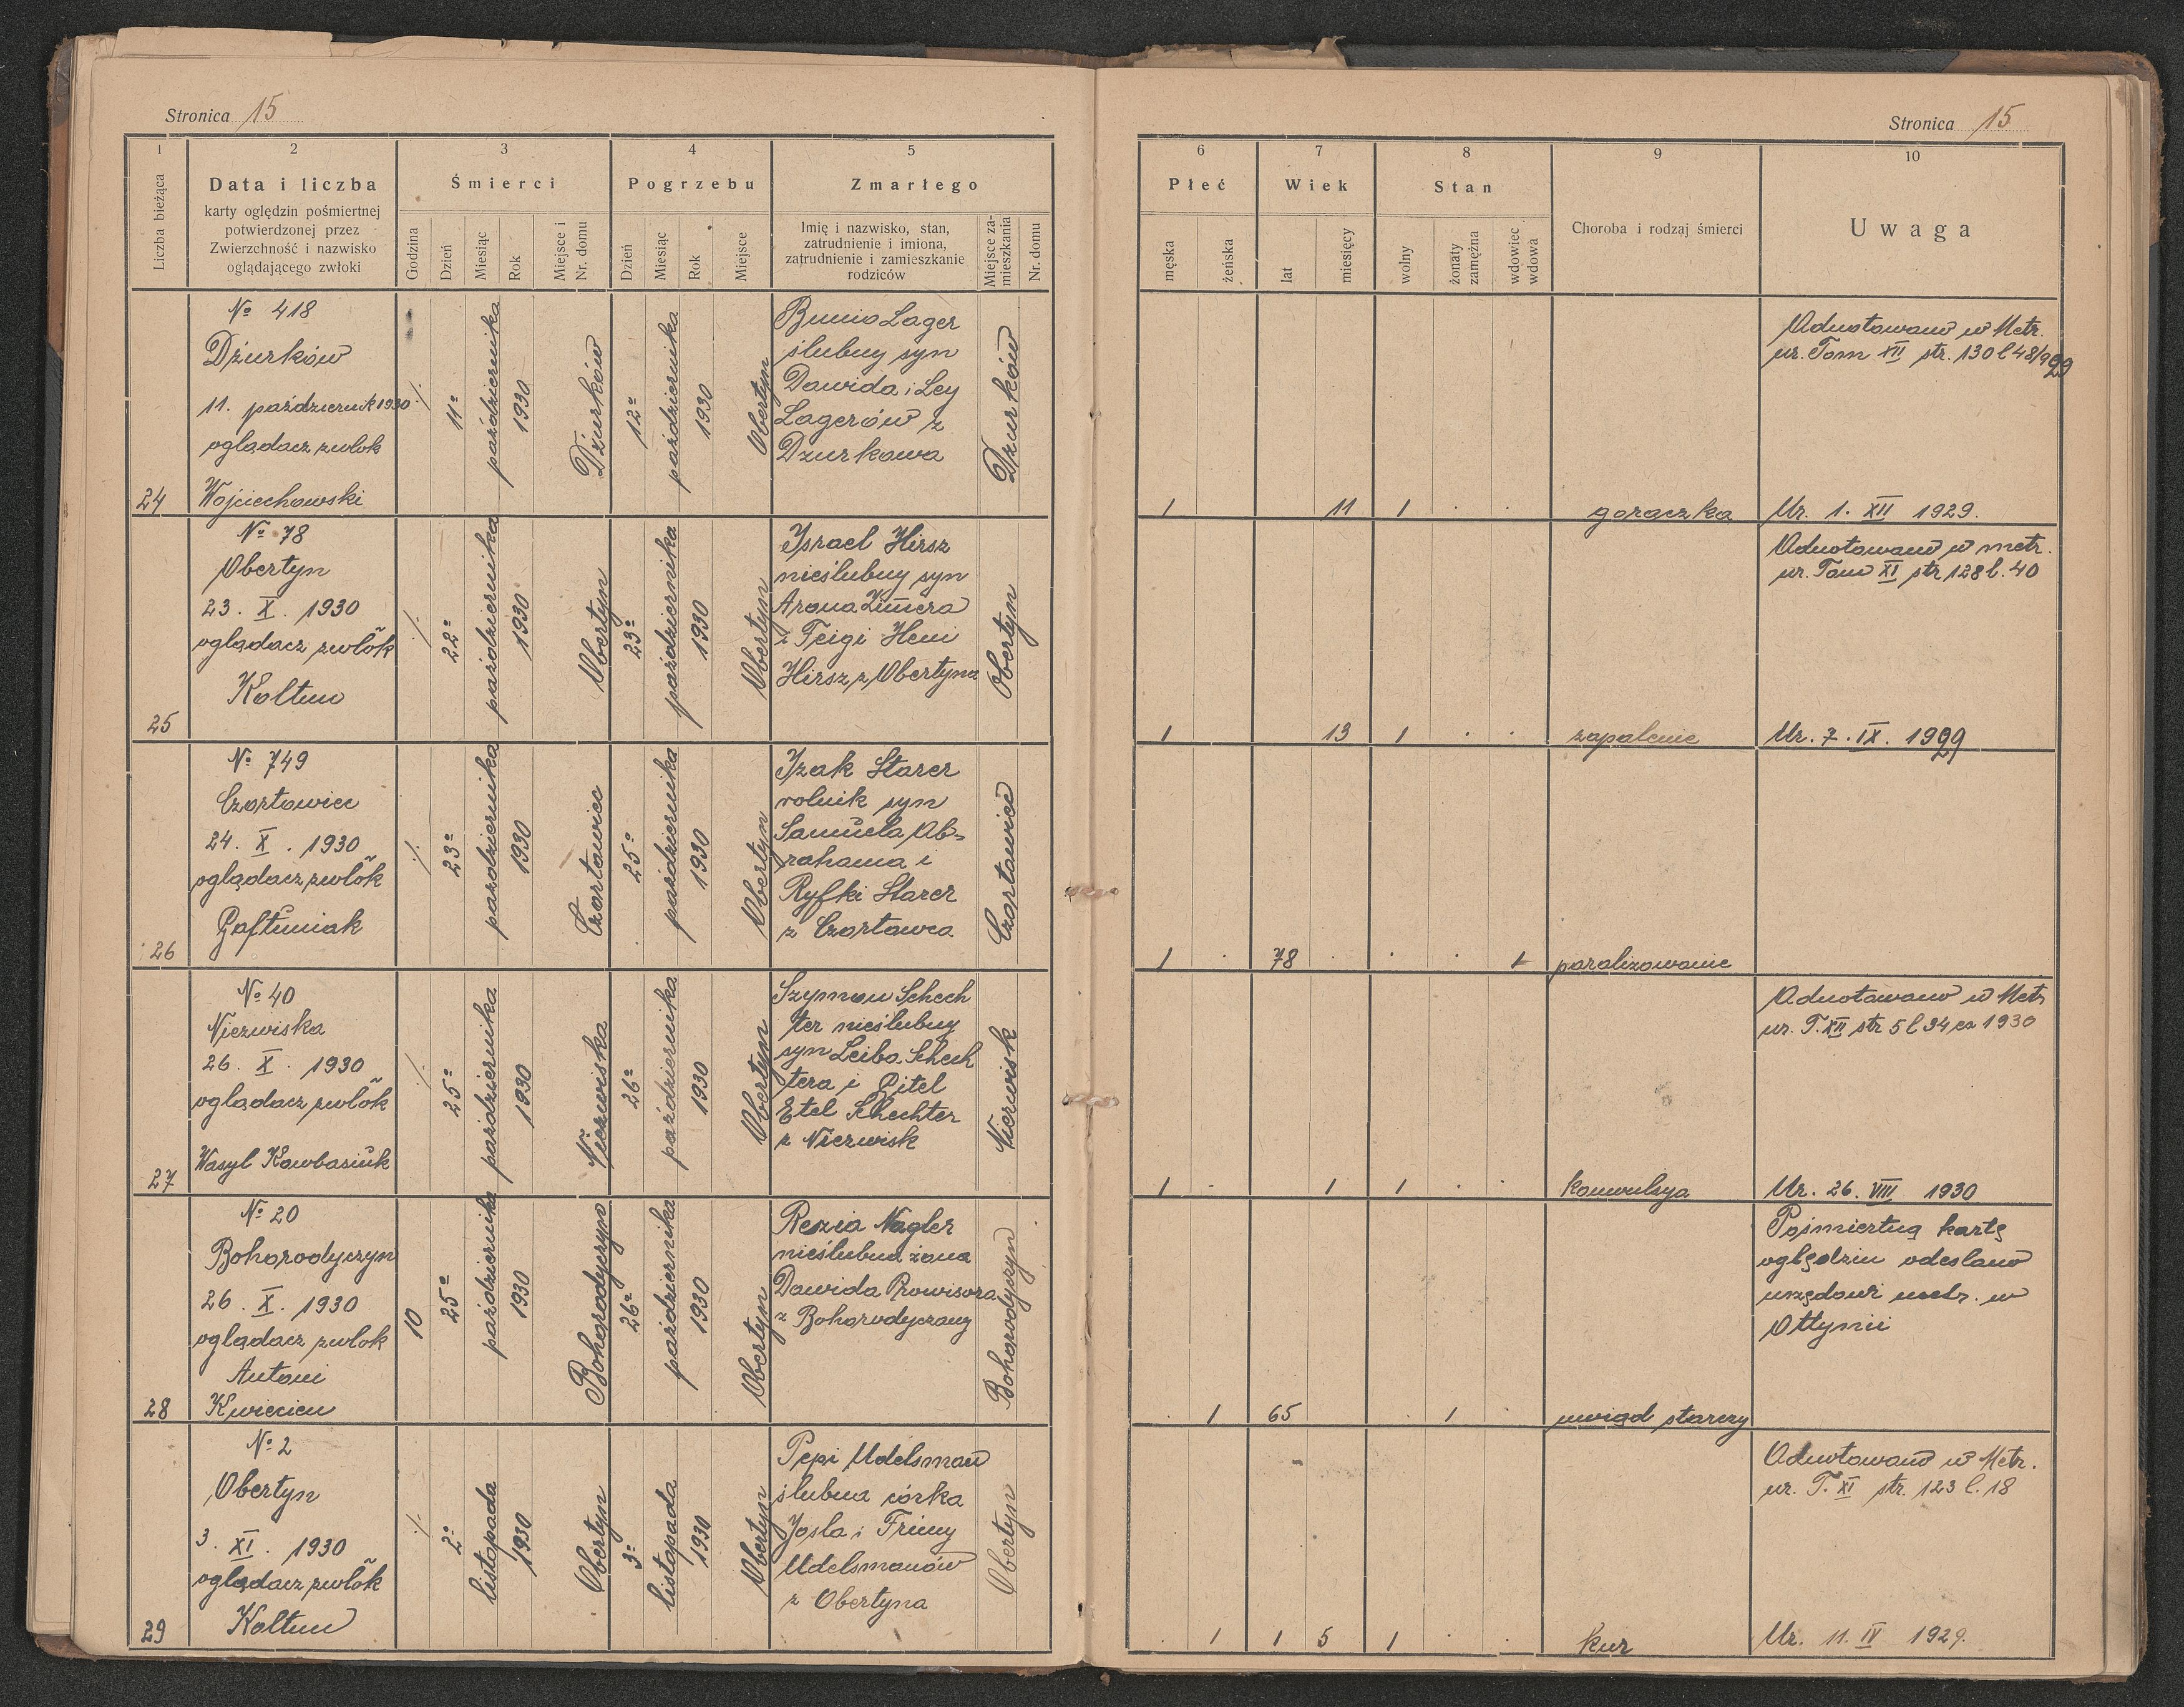 Stronica 15
1 2 3 4 5
Liczba bieżąca
Data i liczba
karty oględzin pośmiertnej
potwierdzonej przez
Zwierzchność i nazwisko
oglądającego zwłoki
Śmierci
Godzina
Dzień
Miesiąc
Rok
Miejsce i
Nr. domu
Pogrzebu
Dzień
Miesiąc
Rok
Miejsce
Zmarłego
Imię i nazwisko, stan,
zatrudnienie i imiona,
zatrudnienie i zamieszkanie
rodziców
Miejsce za-
mieszkania
Nr. domu
24
№ 418
Dżurków
11. październik 1930
oglądacz zwłok
Wojciechowski
./.
11º
października
1930
Dżurków
12º
października
1930
Obertyn
Bunio Lager
ślubny syn
Dawida i Ley
Lagerów z
Dżurkowa
Dżurków
25
№ 78
Obertyn
23. X. 1930
oglądacz zwłok
Koltun
./.
22º
października
1930
Obertyn
23º
października
1930
Obertyn
Israel Hirsz
nieślubny syn
Arona
i Feigi Heni
Hirsz z Obertyna
Obertyn
26
№ 749
Czortowiec
24. X. 1930
oglądacz zwłok
./.
23º
października
1930
Czortowiec
25º
października
1930
Obertyn
Izak Starer
rolnik syn
Samuela Ab=
rahama i
Ryfki Starer
z Czortowca
Czortowiec
27
№ 40
Niezwiska
26. X. 1930
oglądacz zwłok
Wasyl Kowbasiuk
./.
25º
października
1930
Niezwiska
26º
października
1930
Obertyn
Szymon Schech
ter nieślubny
syn Leiba Schech
tera i Gitel
Etel Schechter
z Niezwisk
Niezwisk
28
№ 20
Bohorodyczyn
26. X. 1930
oglądacz zwłok
Antoni
Kwiecien
10
25º
października
1930
Bohorodyczyn
26º
października
1930
Obertyn
Rezia Nagler
nieślubna żona
Dawida Prowisora
z Bohorodyczany
Bohorodyczyn
29
№ 2
Obertyn
3. XI. 1930
oglądacz zwłok
Koltun
./.
2º
listopada
1930
Obertyn
3º
listopada
1930
Obertyn
Pepi Udelsman
ślubna córka
Josla i Frimy
Udelsmanów
z Obertyna
Obertyn
Stronica 15
6 7 8 9 10
Płeć
męska
żeńska
Wiek
lat
miesięcy
Stan
wolny
żonaty
zamężna
wdowiec
wdowa
Choroba i rodzaj śmierci
Uwaga
Adnotowano w Metr.
ur. Tom XII str. 130 l 48/929
1 11 1 . . gorączka Ur. 1. XII 1929.
Adnotowano w metr.
ur. Tom XI str 128 l. 40
1 13 1 . . zapalenie Ur. 7. IX. 1929
1 . 78 . . . 1 paraliżowanie
Adnotowano w Metr
ur. T. XII str 5 l 34 ex 1930
1 . 1 1 . . konwulsya Ur. 26. VIII 1930
Pośmiertną kartę
oględzin odesłano
urzędowi metr. w
Ottynii
. 1 65 . 1 . uwiąd starczy
Adnotowano w Metr.
ur. T. XI str. 123 l. 18
. 1 1 5 1 . . kur Ur. 11. IV 1929.